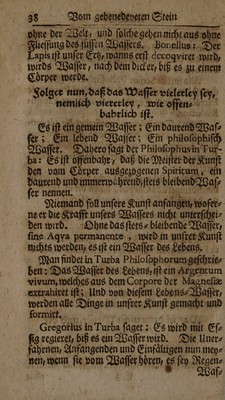 38 Vom gebenedeyeten Stein
ohne der Welt, und solche gehen nicht aus ohne
Fliessung des süssen Wassers. Bonellus: Der
Lapis ist unser Ertz, wanns erst decoqviret wird,
wirds Wasser, nach dem dicker, biß es zu einem
Cörper werde.
Folget nun, daß das Wasser vielerley sey,
nemlich viererley, wie offen-
bahrlich ist.
Es ist ein gemein Wasser; Ein daurend Was-
ser; Ein lebend Wasser; Ein philosophisch
Wasser. Dahero sagt der Philosophus in Tur-
ba: Es ist offenbahr, daß die Meister der Kunst
den vom Cörper ausgezogenen Spiritum, ein
daurend und immerwährend, stets bleibend Was-
ser nennen.
Niemand soll unsere Kunst anfangen, wofer-
ne er die Krafft unsers Wassers nicht unterschei-
den wird. Ohne das stets-bleibende Wasser,
sine Aqva permanente, wird in unser Kunst
nichts werden, es ist ein Wasser des Lebens.
Man findet in Turba Philosophorum geschrie-
ben: Das Wasser des Lebens, ist ein Argentum
vivum, welches aus dem Corpore der Magnesiæ
extrahiret ist; Und von diesem Lebens-Wasser,
werden alle Dinge in unser Kunst gemacht und
formirt.
Gregorius in Turba saget: Es wird mit Es-
sig regieret, biß es ein Wasser wird. Die Uner-
fahrnen, Anfangenden und Einfältigen nun mey-
nen, wenn sie vom Wasser hören, es sey Regen-
Was-